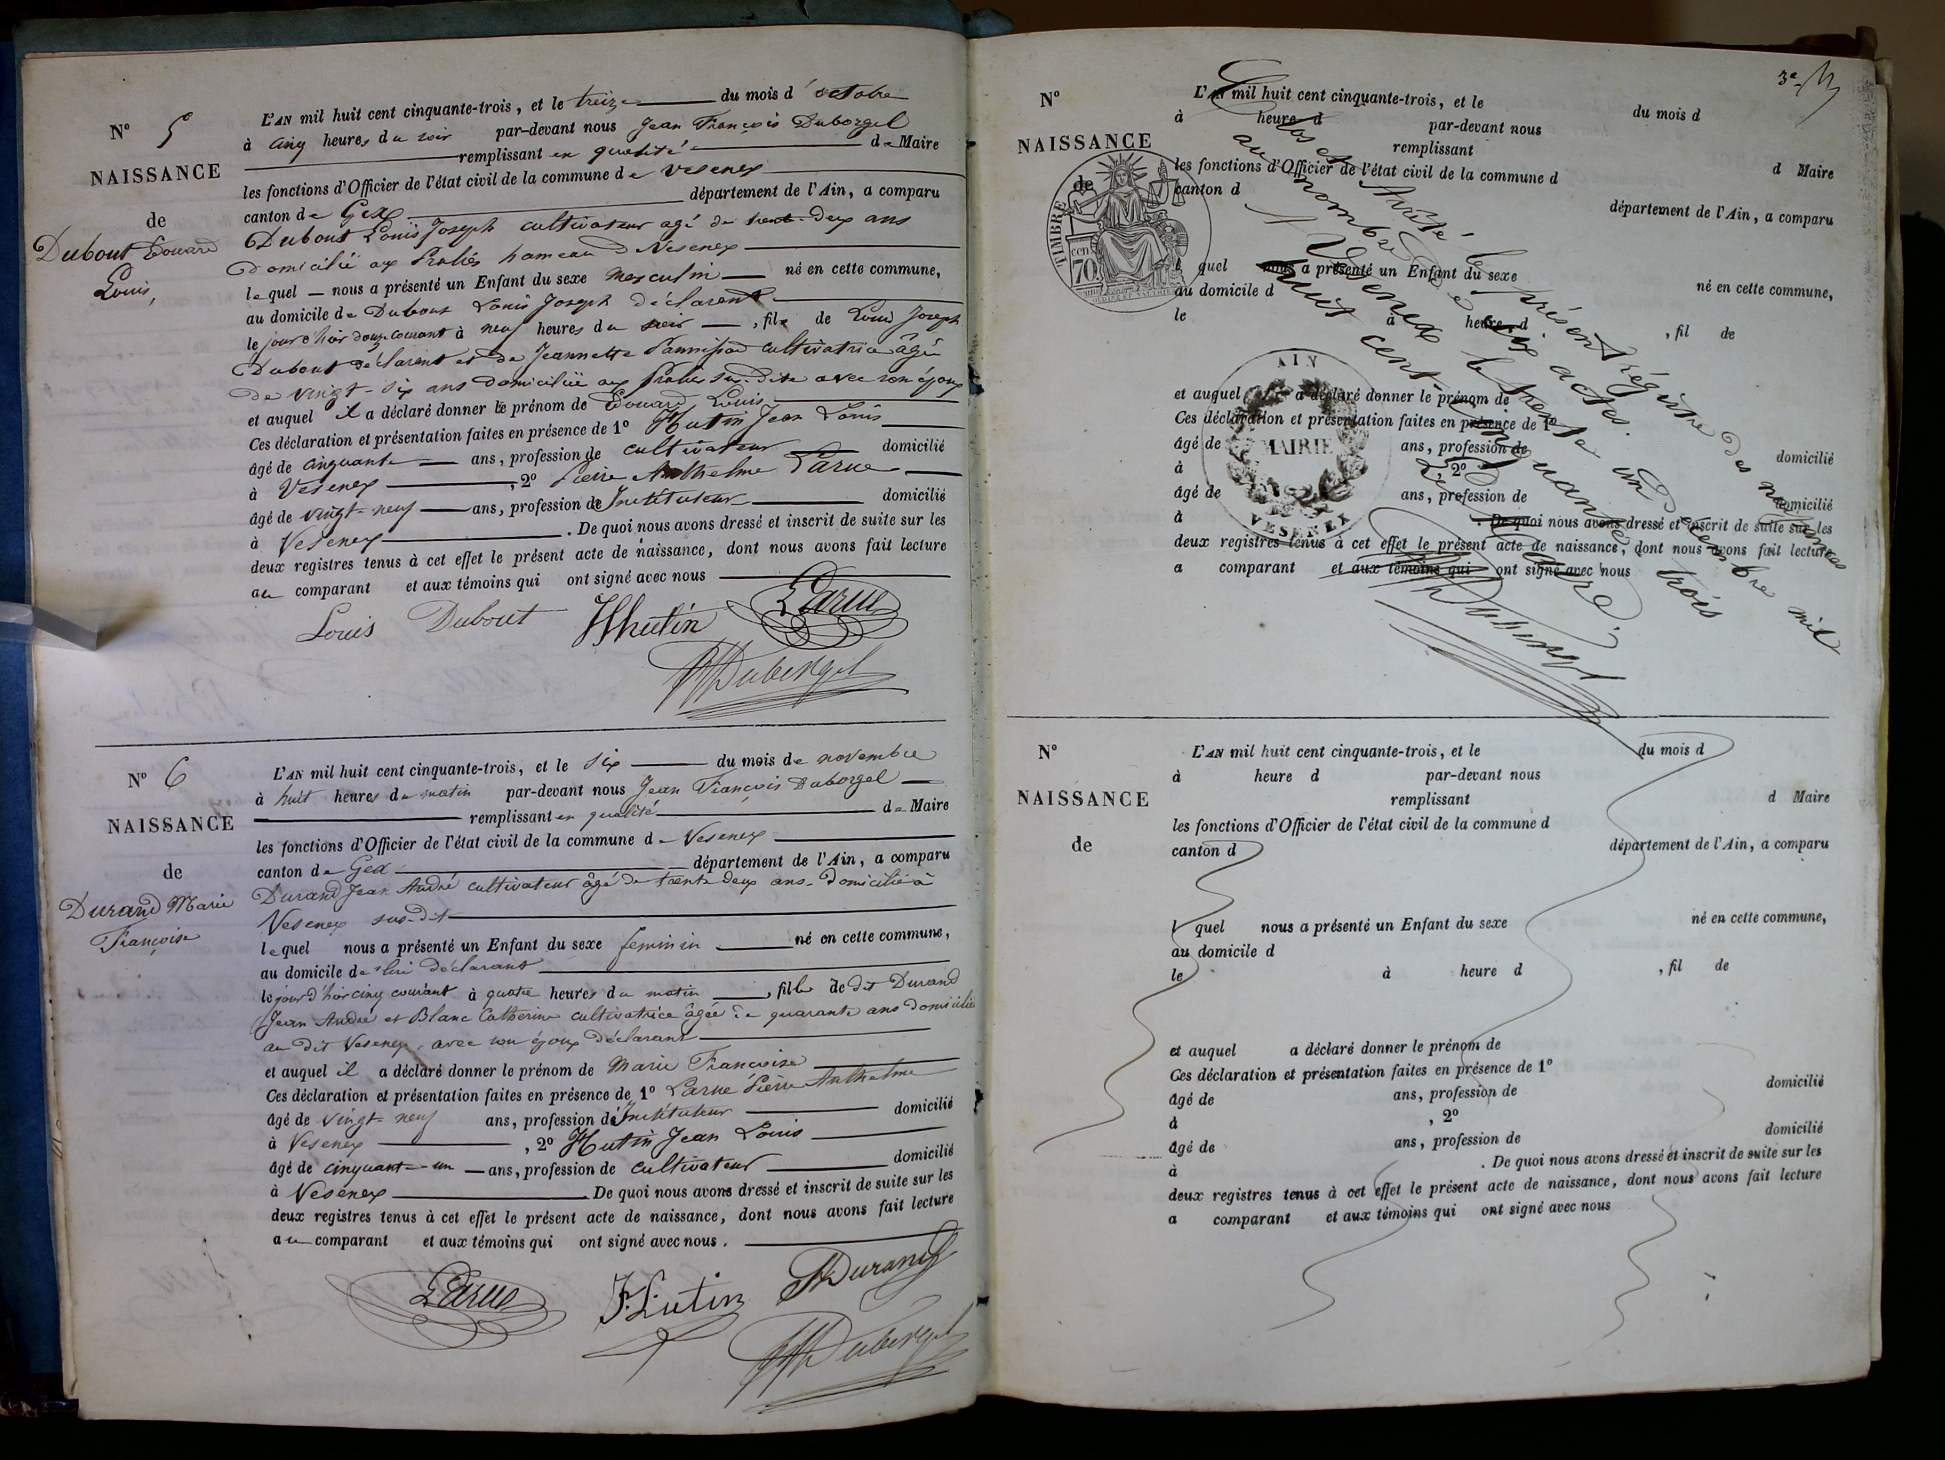 N° 5
NAISSANCE
de
Dubout Edouard
Louis,
L'AN mil huit cent cinquante-trois, et le treize du mois d' octobre
à cinq heures du soir par-devant nous Jean François Duborgel
remplissant en qualité de Maire
les fonctions d'Officier de l'état civil de la commune de Vesenex
canton de Gex département de l'Ain, a comparu
Dubout Louis Joseph cultivateur agé de trente-deux ans
domicilié aux hameau de Vesenex
lequel nous a présenté un Enfant du sexe masculin né en cette commune,
au domicile de Dubout Louis Joseph déclarent
le jour d'hier douze courant à neuf heures du soir, fils de Louis Joseph
Dubout déclarent et de Jeannette cultivatrice âgée
de vingt-six ans domiciliée aux sus-dite avec son époux
et auquel il a déclaré donner le prénom de Edouard Louis
Ces déclaration et présentation faites en présence de 1° Hutin Jean Louis
âgé de cinquante ans, profession de cultivateur domicilié
à Vesenex, 2° Pierre Anthelme Larue
âgé de vingt-neuf ans, profession de Instituteur domicilié
à Vesenex. De quoi nous avons dressé et inscrit de suite sur les
deux registres tenus à cet effet le présent acte de naissance, dont nous avons fait lecture
au comparant et aux témoins qui ont signé avec nous
Louis Dubout JLhutin Larue
Duborgel
N° 6
NAISSANCE
de
Durand Marie
Françoise
L'AN mil huit cent cinquante-trois, et le six du mois de novembre
à huit heures du matin par-devant nous Jean François Duborgel
remplissant en qualité de Maire
les fonctions d'Officier de l'état civil de la commune de Vesenex
canton de Gex département de l'Ain, a comparu
Durand Jean André cultivateur âgé de trente deux ans domicilié à
Vesenex sus-dit
lequel nous a présenté un Enfant du sexe feminin né en cette commune,
au domicile de lui déclarant
le jour d'hier cinq courant à quatre heures du matin, fille de dit Durand
Jean André et Blanc Catherine cultivatrice âgée de quarante ans domicilié
au dit Vesenex avec son époux déclarant
et auquel il a déclaré donner le prénom de Marie Françoise
Ces déclaration et présentation faites en présence de 1° Larue Pierre Anthelme
âgé de vingt-neuf ans, profession de Instituteur domicilié
à Vesenex, 2° Hutin Jean Louis
âgé de cinquante-un ans, profession de cultivateur domicilié
à Vesenex. De quoi nous avons dressé et inscrit de suite sur les
deux registres tenus à cet effet le présent acte de naissance, dont nous avons fait lecture
au comparant et aux témoins qui ont signé avec nous.
Larue JLutin Durand
Duborgel
3e
N°
NAISSANCE
de
TIMBRE
cen
70
L'AN mil huit cent cinquante-trois, et le du mois d
à heure d par-devant nous
remplissant d Maire
les fonctions d'Officier de l'état civil de la commune d
canton d département de l'Ain, a comparu
l quel nous a présenté un Enfant du sexe né en cette commune,
au domicile d
le à heure d, fil de
et auquel a déclaré donner le prénom de
Ces déclaration et présentation faites en présence de 1°
âgé de ans, profession de domicilié
à, 2°
âgé de ans, profession de domicilié
à. De quoi nous avons dressé et inscrit de suite sur les
deux registres tenus à cet effet le présent acte de naissance, dont nous avons fait lecture
a comparant et aux témoins qui ont signé avec nous
Clos et Arrêté le présent régistre des naissances
au nombre de six actes.
A Vesenex le trente un décembre mil
huit cent cinquante trois
Le Maire
Duborgel
AIN
MAIRIE
VESENEX
N°
NAISSANCE
de
L'AN mil huit cent cinquante-trois, et le du mois d
à heure d par-devant nous
remplissant d Maire
les fonctions d'Officier de l'état civil de la commune d
canton d département de l'Ain, a comparu
l quel nous a présenté un Enfant du sexe né en cette commune,
au domicile d
le à heure d, fil de
et auquel a déclaré donner le prénom de
Ces déclaration et présentation faites en présence de 1°
âgé de ans, profession de domicilié
à, 2°
âgé de ans, profession de domicilié
à. De quoi nous avons dressé et inscrit de suite sur les
deux registres tenus à cet effet le présent acte de naissance, dont nous avons fait lecture
a comparant et aux témoins qui ont signé avec nous